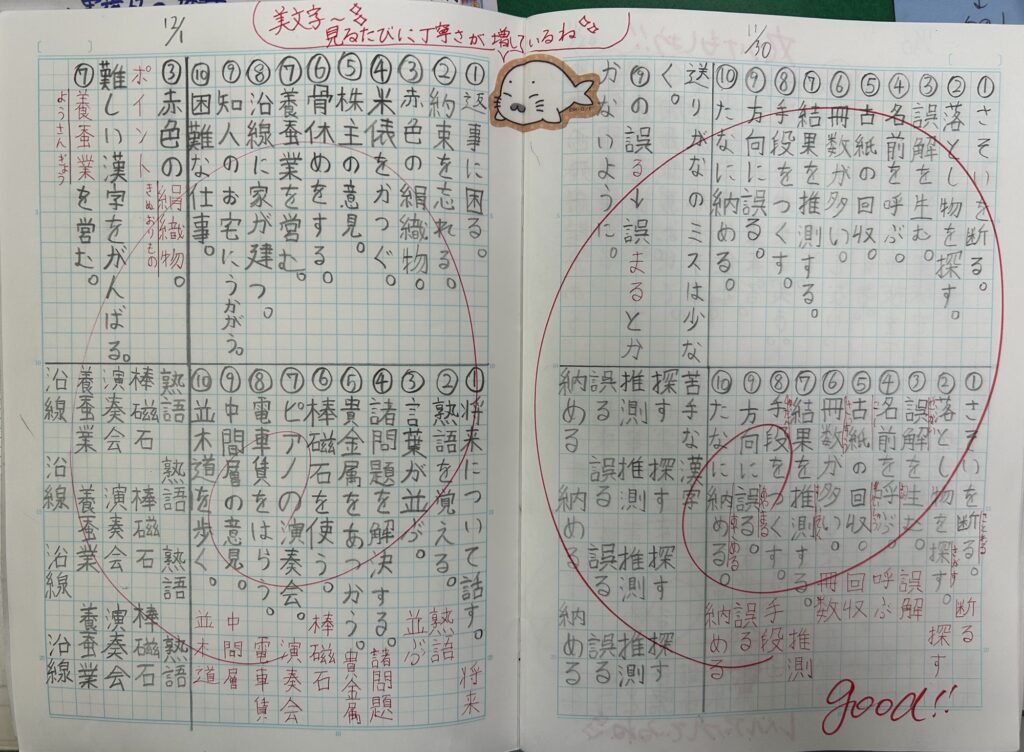 11/30
①さそいを断る。
②落とし物を探す。
③誤解を生む。
④名前を呼ぶ。
⑤古紙の回収。
⑥冊数が多い。
⑦結果を推測する。
⑧手段をつくす。
⑨方向に誤る。
⑩たなに納める。
送りがなのミスは少な
く。
⑨の誤る→誤まるとか
かないように。
①さそいを断る。断る
②落とし物を探す。探す
③誤解を生む。誤解
④名前を呼ぶ。呼ぶ
⑤古紙の回収。回収
⑥冊数が多い。冊数
⑦結果を推測する。推測
⑧手段をつくす。手段
⑨方向に誤る。誤る
⑩たなに納める。納める
苦手な漢字
探す 探す 探す
推測 推測 推測 推測
誤る 誤る 誤る 誤る
納める 納める 納める
good!!
美文字~
見るたびに丁寧さが増しているね
12/1
①返事に困る。
②約束を忘れる。
③赤色の絹織物。
④米俵をかつぐ。
⑤株主の意見。
⑥骨休めをする。
⑦養蚕業を営む。
⑧沿線に家が建つ。
⑨知人のお宅にうかがう。
⑩困難な仕事。
③赤色の絹織物。
きぬおりもの
ポイント
難しい漢字をがんばる。
⑦養蚕業を営む。
ようさんぎょう
①将来について話す。将来
②熟語を覚える。熟語
③言葉が並ぶ。並ぶ
④諸問題を解決する。諸問題
⑤貴金属をあつかう。貴金属
⑥棒磁石を使う。棒磁石
⑦ピアノの演奏会。演奏会
⑧電車賃をはらう。電車賃
⑨中間層の意見。中間層
⑩並木道を歩く。並木道
熟語 熟語 熟語 熟語
棒磁石 棒磁石 棒磁石
演奏会 演奏会 演奏会
養蚕業 養蚕業 養蚕業
沿線 沿線 沿線 沿線